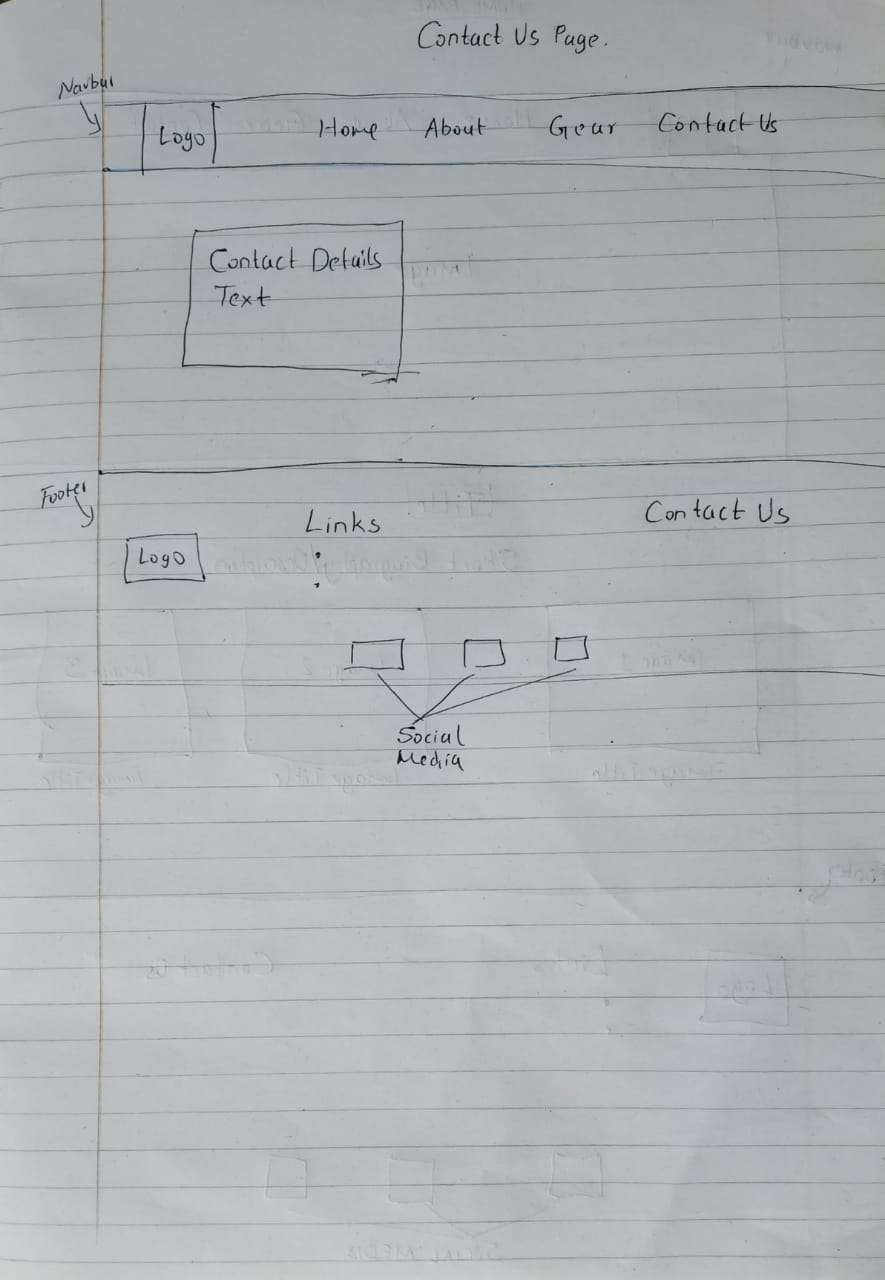 Contact Us Page.
Navbar
Logo Home About Gear Contact Us
Contact Details
Text
Footer
Links Contact Us
Logo
Social
Media